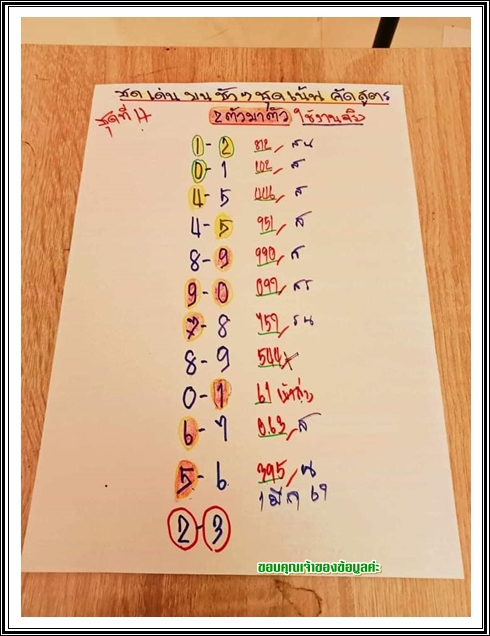 ชุดเด่น บน ชัวๆ ชุดเน้น คัดสูตร
ชุดที่ 17 2 ตัวมาตัว ใช้งานจริง
1-2 812/ สน
0-1 102/ ส
4-5 446/ ส
4-5 951/ ส
8-9 990/ ส
9-0 097/ สร
7-8 757/ รน
8-9 544x
0-1 61
6-7 063/ ส
5-6 395/ น
1 มีค 69
2-3
ขอบคุณเจ้าของข้อมูลค่ะ